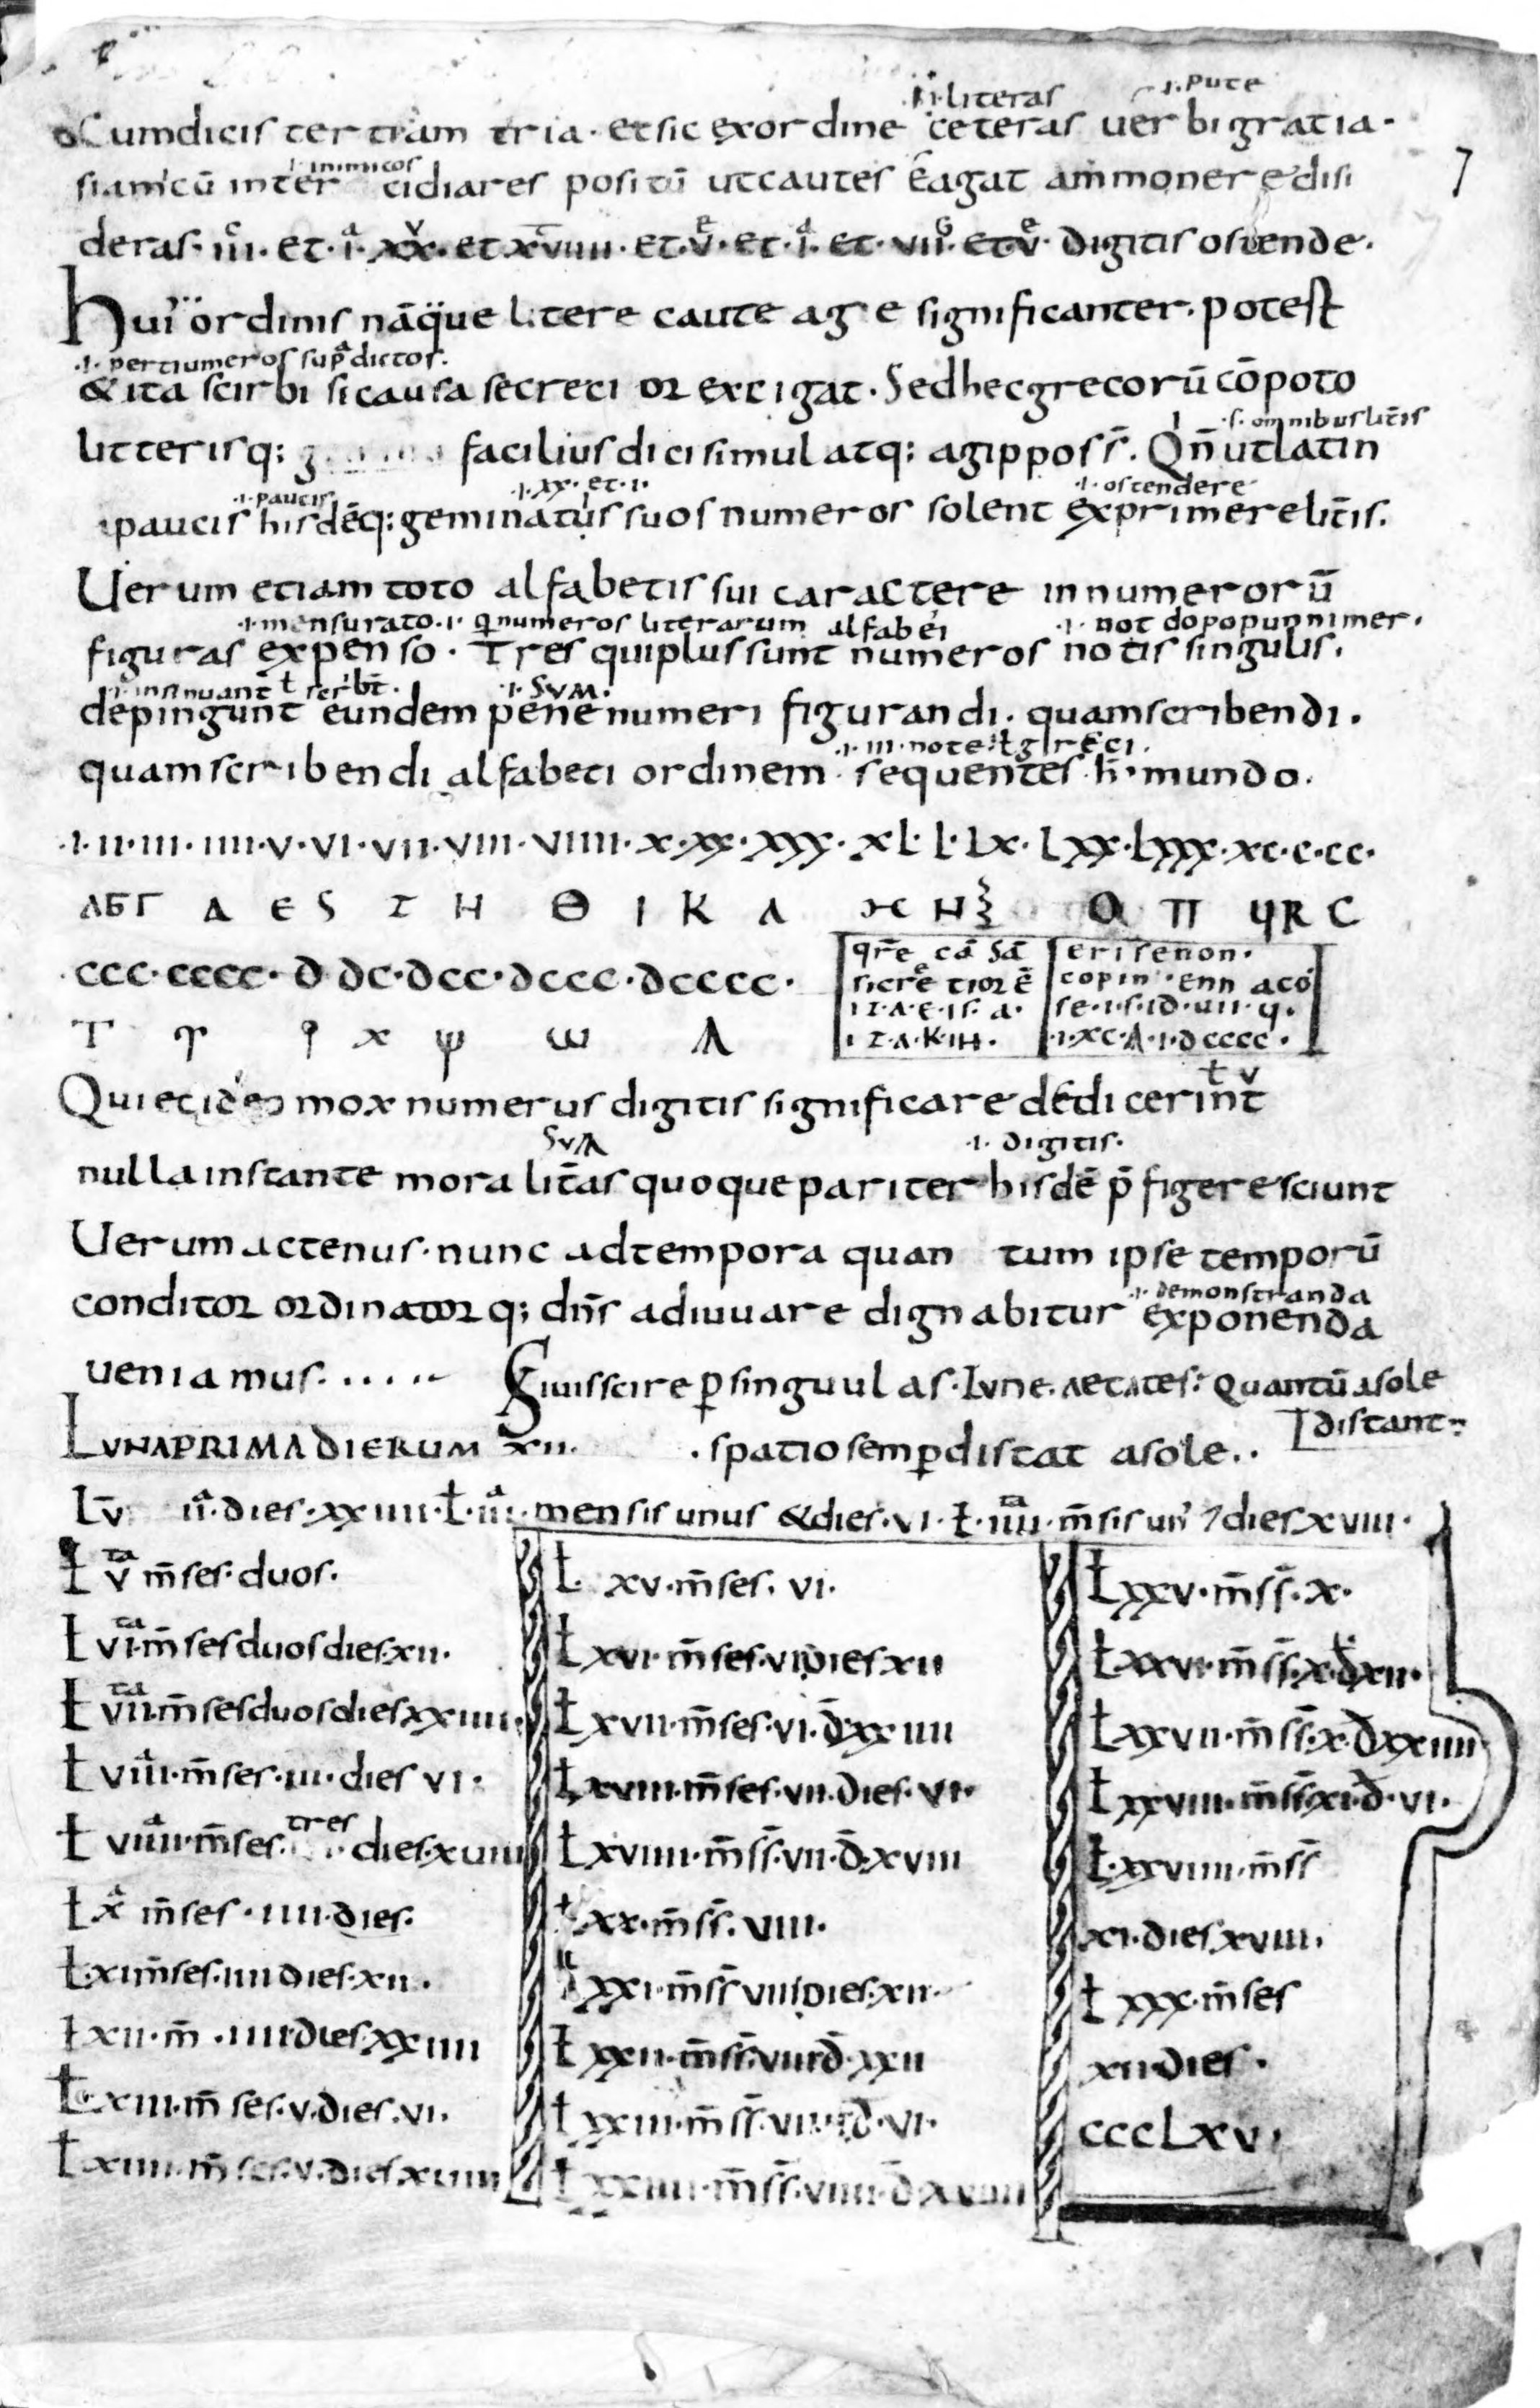 .i. literas .i. pute
Cum dicis tertiam tria · et sic ex ordine ceteras uerbi gratia ·
.i. inimicos
si amicū inter cidiares positū ut cautes agat ammonere disi
deras · et · et · et · et · et · digitis ostende ·
hui ordinis nāque litere caute age significanter · potest
.i. per numeros supdictos ·
& ita scirbi si causa secreti or exigat · Sed hec grecorū cōpoto
.s. omnibus litīs
litterisq; facilius dici simul atq; agi poss̄ · Qn̄ ut latin
.i. paucis .i. xx · et · i · .i. ostendere
paucis hisdēq; geminatus suos numeros solent exprimere litīs ·
Uerum etiam toto alfabetis sui caractere in numerorū
.i. mensurato .i. numeros literarum alfabei
figuras expenso · Tres qui plus sunt numeros notis singulis ·
.i. insinuant ł scrbt̄ · .i. SUM ·
depingunt eundem pene numeri figurandi · quam scribendi ·
.i. iii · note ł greci ·
quam scribendi alfabeti ordinem · sequentes h̄ · mundo ·
· i · ii · iii · iiii · v · vi · vii · viii · viiii · x · xx · xxx · xl · l · lx · lxx · lxxx · xc · c · cc ·
Λ Б Γ Δ Є S Z H Θ I K Λ H O Π ϤR C
· ccc · cccc · d dc · dcc · dccc · dcccc ·
T x ψ ω
qr̄e cā sā
sicre tior ē
i z · a · e · is · a ·
i z · a · k · iH ·
erisenon ·
copin · enn aco
se · i · s · id · uii · q ·
· i · xc · i · dcccc ·
Qui et mox numerus digitis significare dedicerint
.i. digitis ·
nulla instante mora lit̄as quoque pariter hisdē p̄figere sciunt
Uerum actenus · nunc ad tempora quan tum ipse temporū
.i. demonstranda
conditor ordinator q; dn̄s adiuuare dignabitur exponenda
ueniamus · · · · ·
Siuis scire p singuulas · lune · aetates · quantū a sole
distant
LUNA PRIMA DIERUM xii · · spatio semp distat a sole · ·
Lv̄ ii · dies · xxiiii · ł · iii · mensis unus & dies · vi · ł · iiii · m̄sis un' 7 dies xviii ·
Ł v m̄ses · duos ·
Ł vi · m̄ses duos dies · xii ·
Ł vii · m̄ses duos dies xxiiii ·
Ł viii · m̄ses · iii · dies vi ·
Ł viiii · m̄ses · tres · dies · xviii
Ł x m̄ses · iiii · dies ·
Ł · xi m̄ses · iiii dies · xii ·
Ł xii · m̄ · iiii · dies xxiiii
Ł xiii · m̄ses · v · dies · vi ·
Ł xiiii · m̄ses · v · dies xviii
Ł · xv · m̄ses · vi ·
Ł xvi · m̄ses · vi dies xii
Ł xvii · m̄ses · vi · d̄ · xxiiii
Ł xviii · m̄ses · vii · dies · vi ·
Ł xviiii · m̄ss̄ · vii · d̄ · xviii
Ł xx · m̄ss̄ · viii ·
xxi · m̄ss̄ viii dies · xii ·
Ł xxii · m̄ss̄ · viii d̄ · xxii
Ł xxiii · m̄ss̄ · d̄ · vi ·
Ł xxiiii · m̄ss̄ · viiii · d̄ · xviii
Ł xxv · m̄ss̄ · x ·
Ł xxvi · m̄ss̄ · x · d̄ xii ·
Ł xxvii · m̄ss̄ · x · d̄ xxiiii
Ł xxviii · m̄ss̄ xi · d̄ · vi ·
Ł · xxviiii · m̄ss̄
xi · dies xviii ·
Ł xxx · m̄ses
xii · dies ·
cccLxv